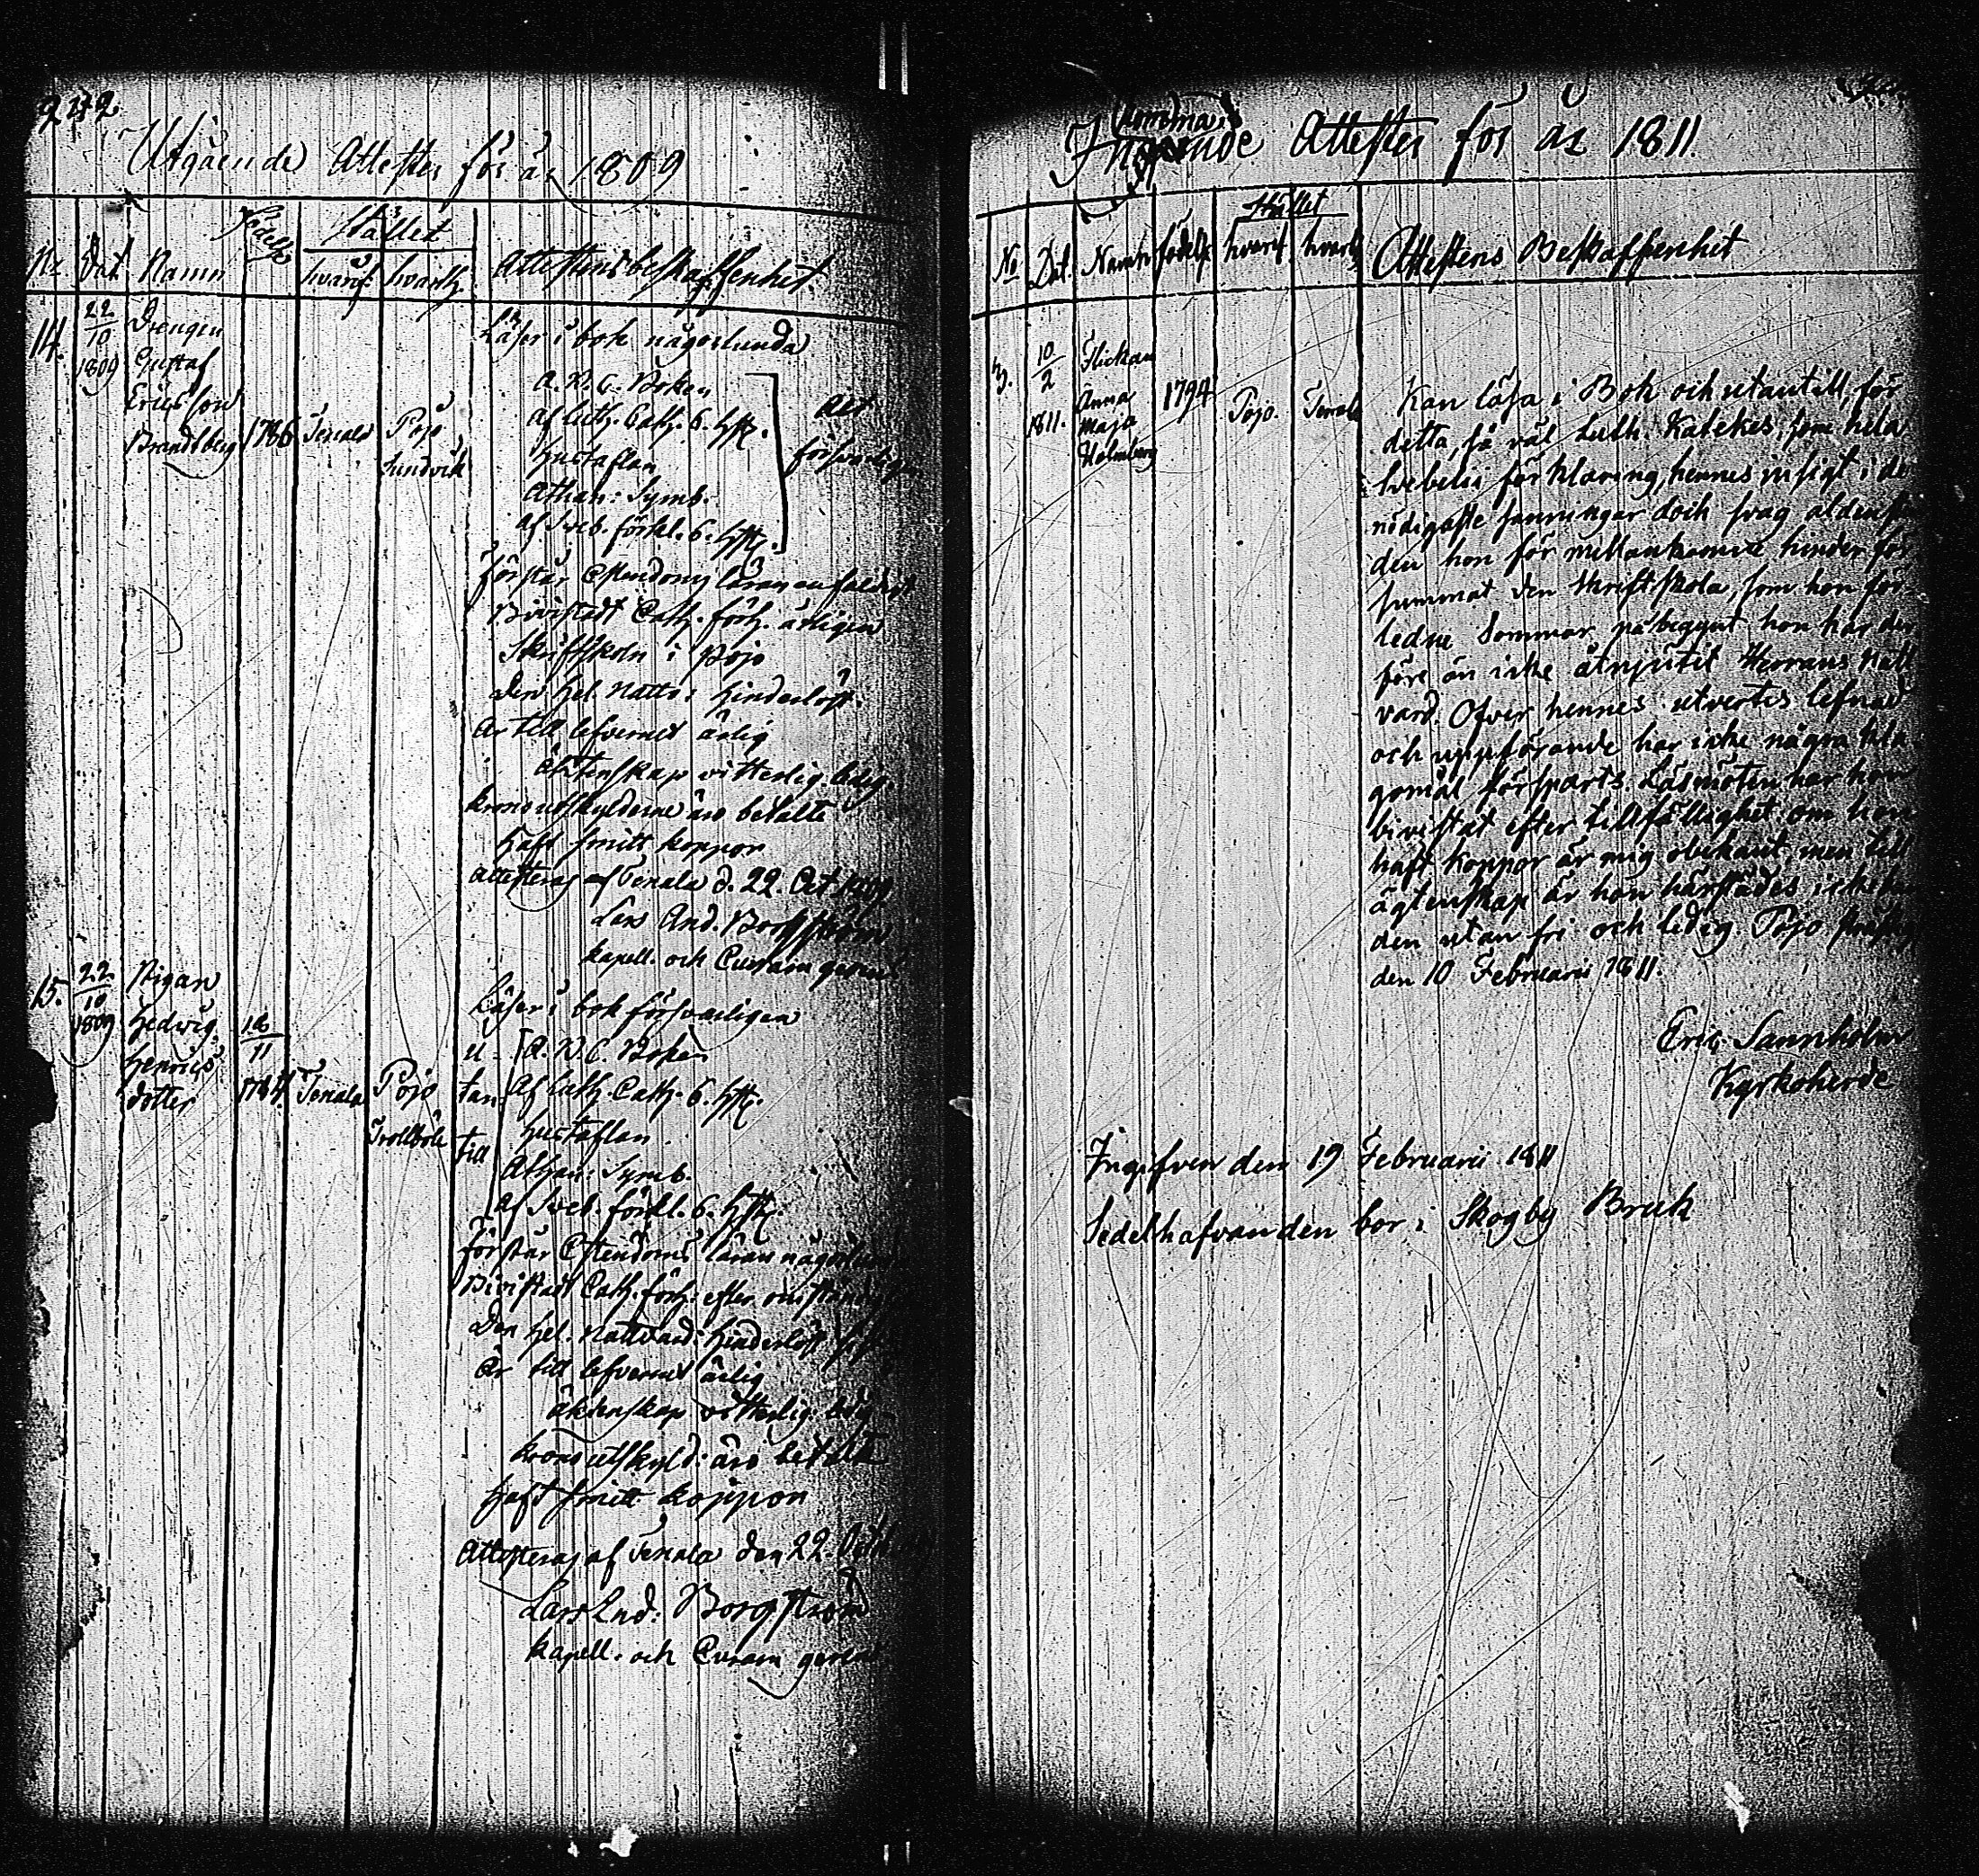 242.
Utgående Attester för år 1809
Nr. Dat. Namn Födels Stället hvarif. hvarth. Attestens beskaffenhet
14. 22/10 1809 Drengen Gustaf Ericsson Brandtberg 1786 Tenala Pojo Sundvik
Läser i bok någorlunda
A.B.C. Boken
af Luth. Cath. 6. Hft.
Hustaflan
Athan: Symb.
af Sveb. förkl. 6. Hft.
alt försvarligen
förstår Christendoms läran enfaldigt
Bivistadt Cath. förh. årligen
Skriftskoln i Pojo
den hel. nattv: hinderlöst.
Är till lefvernet ärlig
äktenskap vitterlig. ledig
kronoutskylderne äro betalte
haft smitt koppor
attesteras af Tenala d. 22. Oct 1809
Lars And. Borgström
kapell. och Curam gerens
15. 22/10 1809 Pigan Hedvig Henrics dotter /11 Tenala Pojo Trollböle
Läser i bok försvarligen
u- A.B.C. Boken
tan af Luth. Cath. 6. Hft.
till Hustaflan
Athan: Symb.
af Sveb. förkl. 6. Hft.
förstår Christendoms läran
Bivistadt Cath. förh. efter
Den hel. nattvard: hinderlöst
Är till lefvernet ärlig
äktenskap vitterlig. ledig
kronoutskyld: äro betalte
haft smitt koppor
Attesteras af Tenala den 22.
Lars And: Borgström
kapell. och Curam gerens
Inkommande Attester för år 1811.
No Dat. Namn födels Stället hvarif. hvarth. Attestens Beskaffenhet
3. 10/2 1811. Flickan Anna Maja Holmberg 1794 Pojo. Tenala
Kan läsa i Bok och utantill, för
detta, så väl Luth. Katekes, som hela
Svebelii förklaring, hennes insigt i de
nödigaste sanningar doch svag aldenstun
den hon för mellankomne hinder för
summat den skriftskola, som hon för
ledne Sommar påbegynt hon har der
före än icke åtnjutit Herrans Natt
vard. Öfver hennes utvertes lefnad
och uppförande har icke några kla
gomål försparts. Läsmöten har hon
bivistat efter tillfällighet om hon
haft koppor är mig obekant, men till
ägtenskap är hon härstädes icke bun
den utan fri och ledig. Pojo
den 10 Februarii 1811.
Eric Sannholm
Kyrkoherde
Ingifven den 19 Februarii 1811
Sedelhafvanden bor i Skogby Bruk